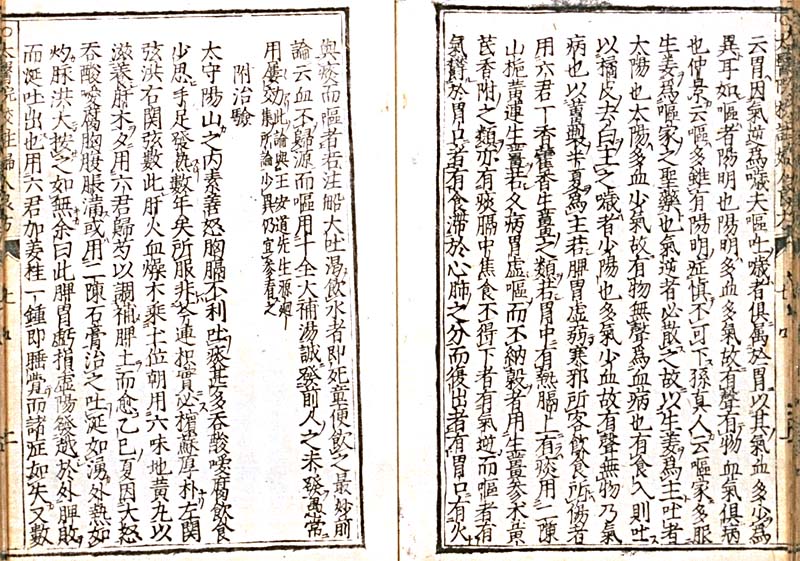 云胃因氣逆爲噦夫嘔吐噦者俱屬於胃以其氣血多少爲
異耳如嘔者陽明也陽明多血多氣故有聲有物血氣俱病
也仲景云嘔多雖有陽明症慎不可下孫真人云嘔家多服
生姜爲嘔家之聖藥也氣逆者必散之故以生姜爲主吐者
太陽也太陽多血少氣故有物無聲爲血病也有食入則吐
以橘皮去白主之噦者少陽也多氣少血故有聲無物乃氣
病也以黃蘗半夏爲主若脾胃虛弱寒邪所客飲食所傷者
用六君丁香藿香生薑之類若胃中有熱膈上有痰用二陳
山梔黃連生薑若久病胃虛嘔而不納穀者用生薑參朮黃
芪香附之類亦有痰膈中焦食不得下者有氣逆而嘔者有
氣欝於胃口者有食滯於心肺之分而復出者有胃口有火
與痰而嘔者若注船大吐渴飲水者即死童便飲之最妙前
論云血不歸源而嘔用十全大補湯誠發前人之未發愚常
用屢効此論與王安道先生源洄
集所論少異仍宜參看之
附治驗
太守陽山之內素善怒胸膈不利吐痰甚多吞酸噯腐飲食
少思手足發熱數年矣所服非芩連枳實必檳蘇厚朴左關
弦洪右關弦數此肝火血燥木乘土位朝用六味地黃丸以
滋養肝木夕用六君歸芍以調補脾土而愈乙巳夏因大怒
吞酸噯腐胸腹脹滿或用二陳石膏治之吐涎如湧外熱如
灼脈洪大按之如無余曰此脾胃虧損虛陽發越於外脾敗
而涎吐出也用六君加姜桂一鍾即睡覺而諸症如失又數